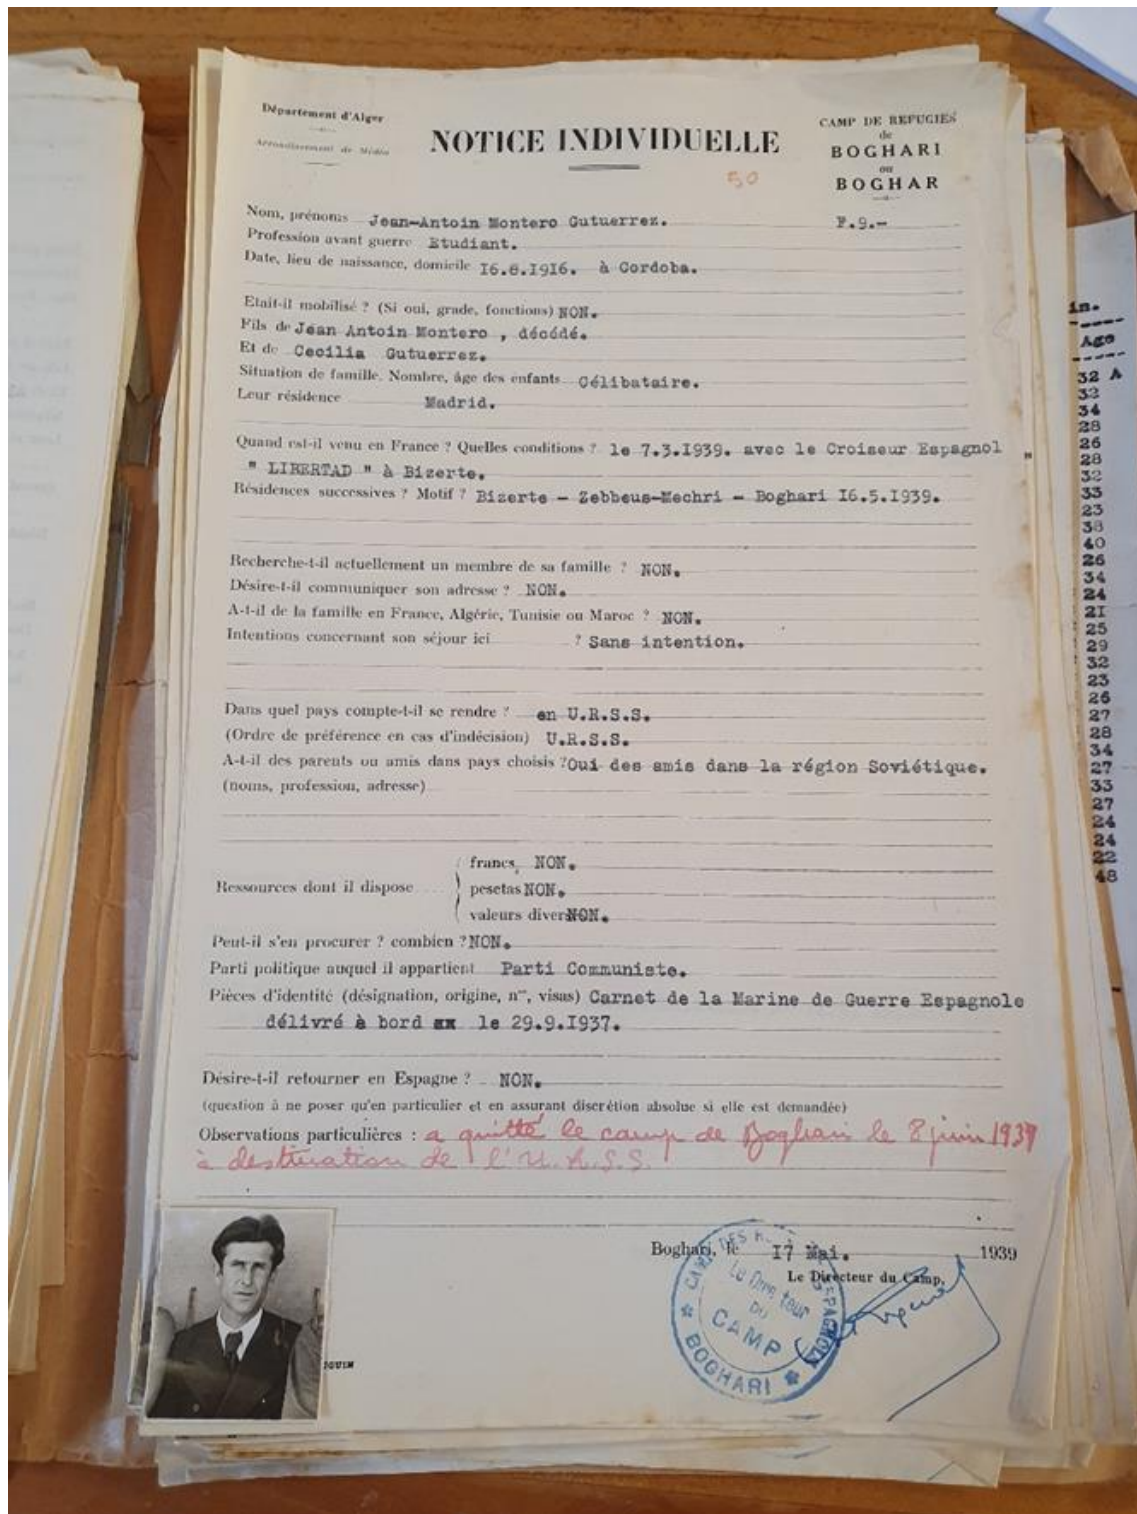 Département d'Alger
Arrondissement de Médéa
NOTICE INDIVIDUELLE
50
CAMP DE REFUGIÉS
de
BOGHARI
ou
BOGHAR
F.9.-
Nom, prénoms Jean-Antoin Montero Gutuerrez.
Profession avant guerre Etudiant.
Date, lieu de naissance, domicile I6.6.I9I6. à Cordoba.
Etait-il mobilisé ? (Si oui, grade, fonctions) NON.
Fils de Jean Antoin Montero , décédé.
Et de Cecilia Gutuerrez.
Situation de famille. Nombre, âge des enfants Célibataire.
Leur résidence Madrid.
Quand est-il venu en France ? Quelles conditions ? le 7.3.I939. avec le Croiseur Espagnol
" LIBERTAD " à Bizerte.
Résidences successives ? Motif ? Bizerte - Zebbeus-Mechri - Boghari I6.5.I939.
Recherche-t-il actuellement un membre de sa famille ? NON.
Désire-t-il communiquer son adresse ? NON.
A-t-il de la famille en France, Algérie, Tunisie ou Maroc ? NON.
Intentions concernant son séjour ici ? Sans intention.
Dans quel pays compte-t-il se rendre ? en U.R.S.S.
(Ordre de préférence en cas d'indécision) U.R.S.S.
A-t-il des parents ou amis dans pays choisis ? Oui des amis dans la région Soviétique.
(noms, profession, adresse)
francs, NON.
Ressources dont il dispose pesetas NON.
valeurs divers NON.
Peut-il s'en procurer ? combien ? NON.
Parti politique auquel il appartient Parti Communiste.
Pièces d'identité (désignation, origine, nos, visas) Carnet de la Marine de Guerre Espagnole
délivré à bord xx le 29.9.I937.
Désire-t-il retourner en Espagne ? NON.
(question à ne poser qu'en particulier et en assurant discrétion absolue si elle est demandée)
Observations particulières : a quitté le camp de Boghari le 8 juin 1939
à destination de l'U.R.S.S.
Boghari, le I7 Mai. 1939
Le Directeur du Camp,
Le Directeur
DU
CAMP
BOGHARI
in.
Age
32 A
32
34
28
26
28
32
33
23
38
40
26
34
24
2I
25
29
32
23
26
27
28
34
27
33
27
24
24
22
48